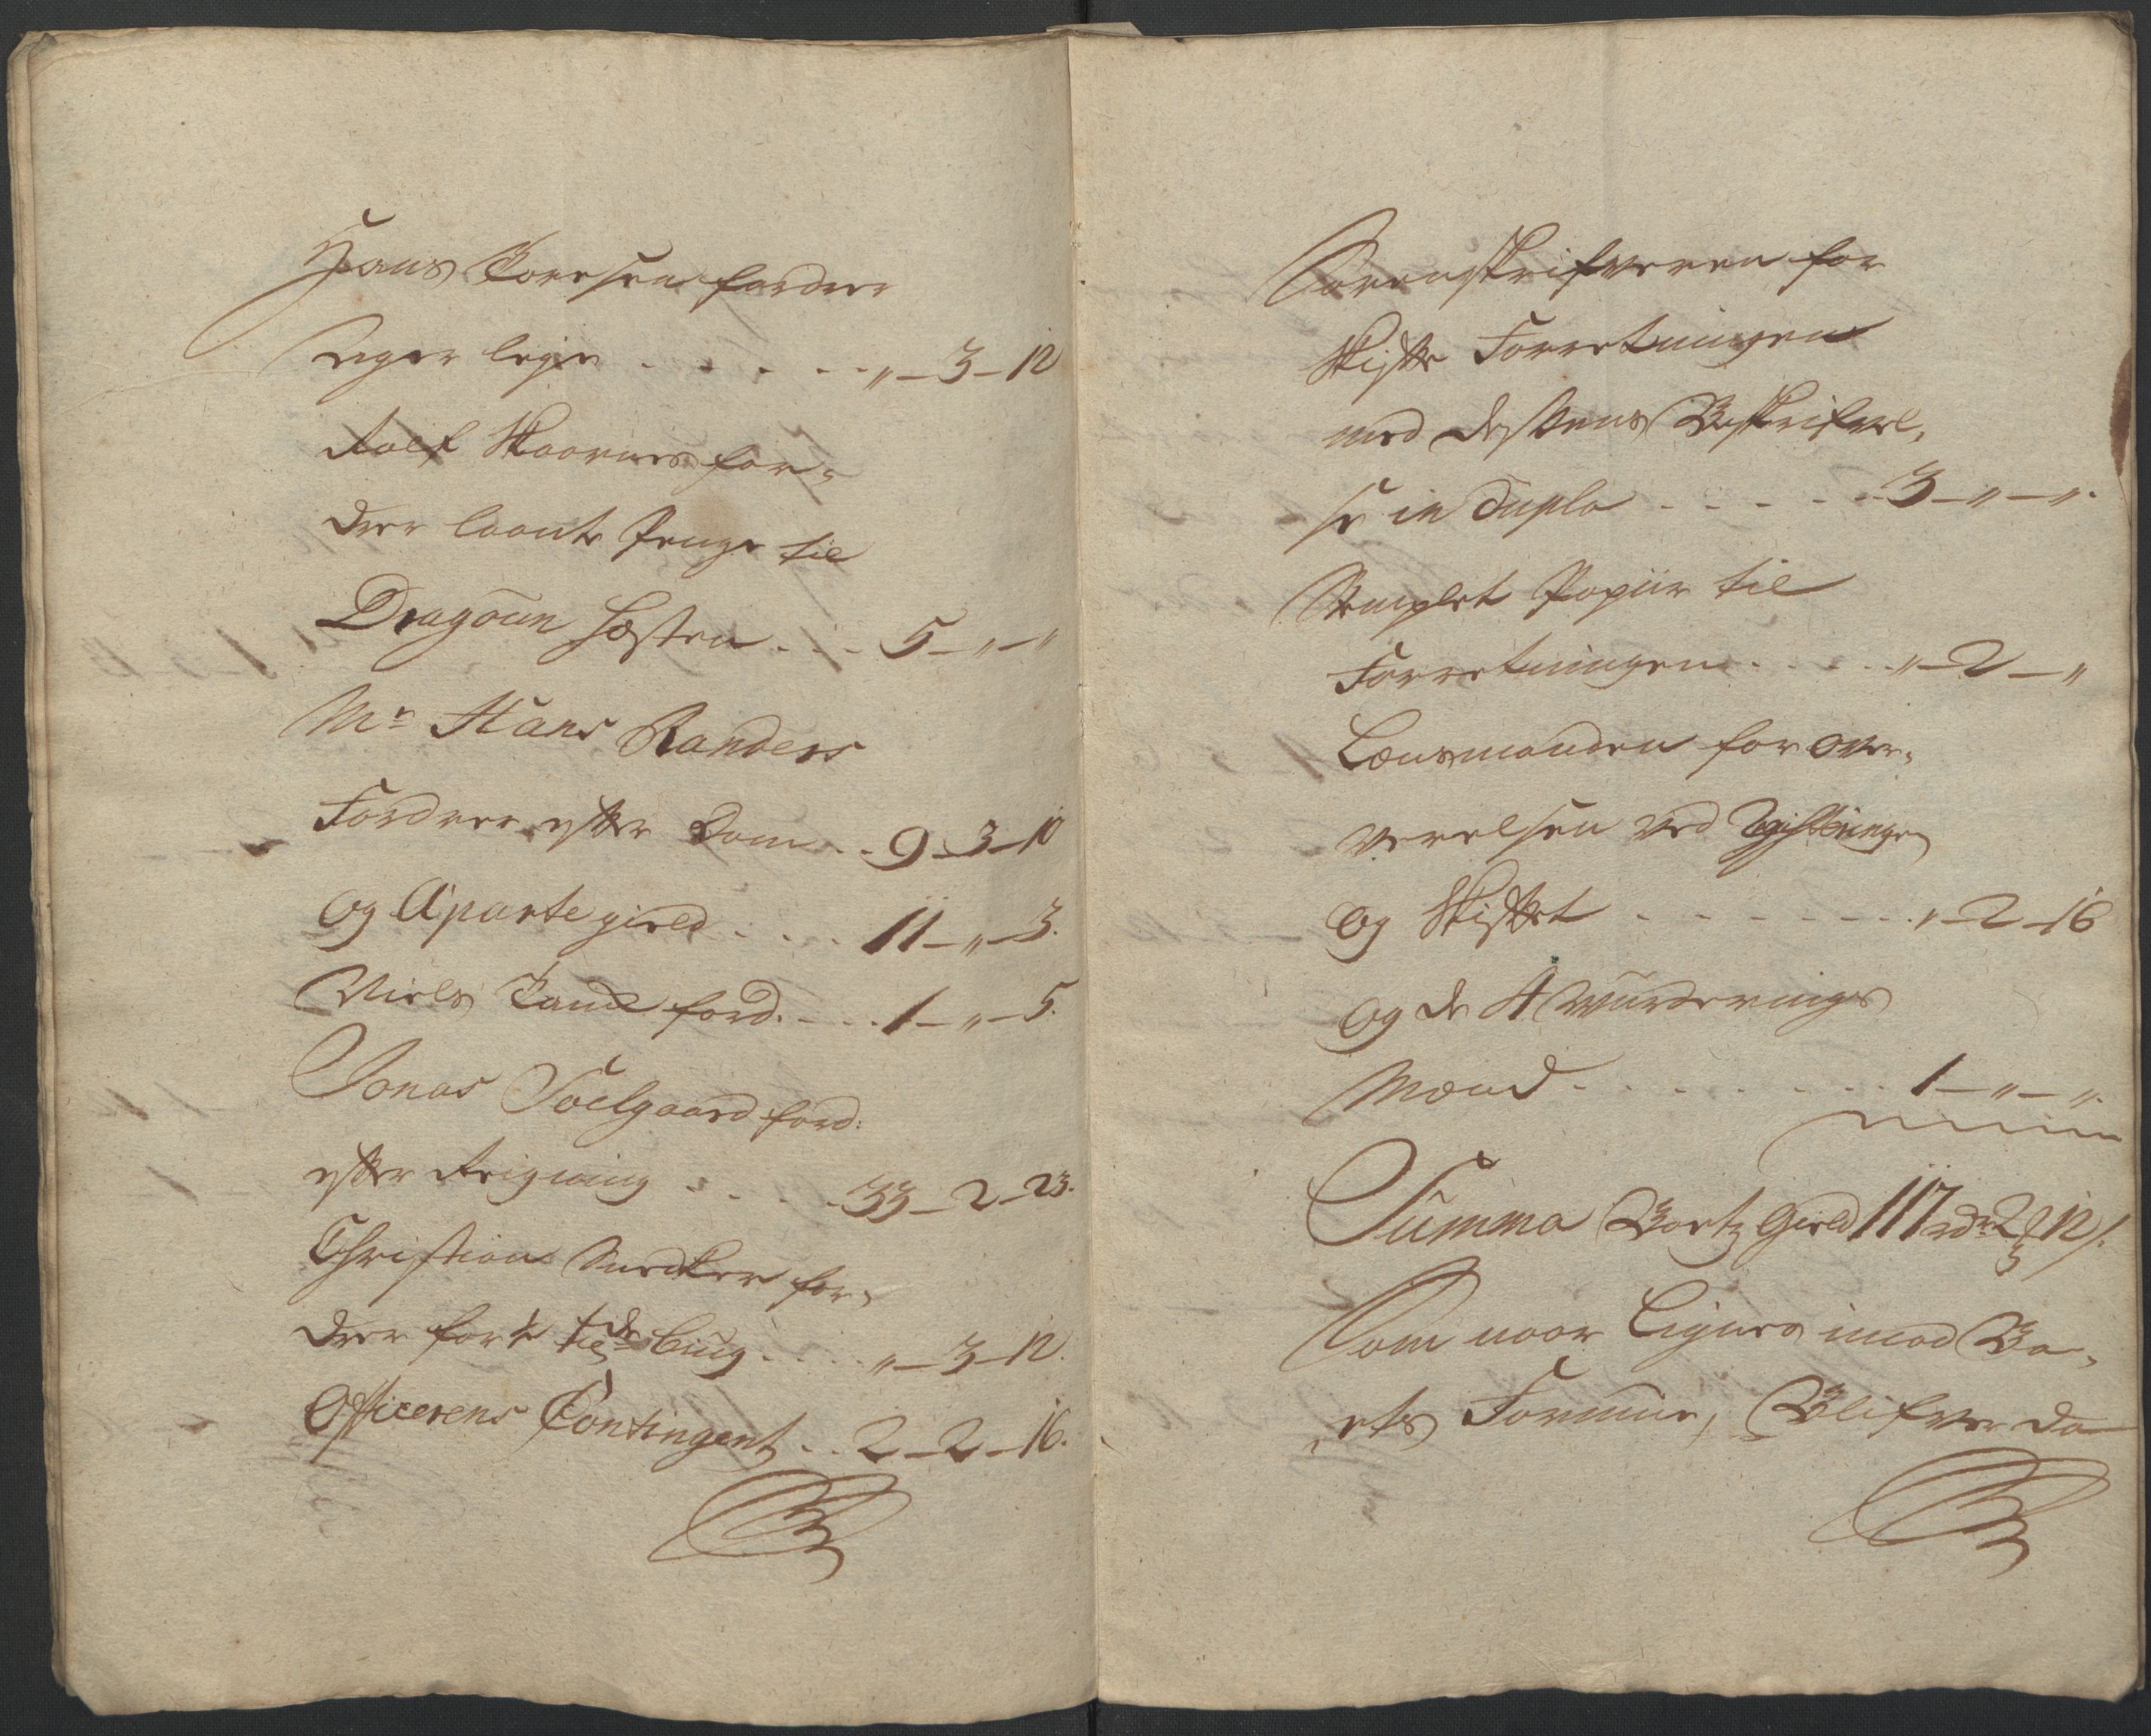 Hans Toresen fordrer
Ager leje . . . . . . „ - 3 - 12
Rolf Skaarnes for-
drer laante Penge til
Dragoun Hæsten . . . 5 - „ - „
Mr Hans Randers
Fordrer efter Dom . . 9 - 3 - 10
og Aparte gield . . . . 11 - „ - 3.
Niels ford. . . . 1 - „ - 5.
Jonas Soelgaard ford:
efter Reigning . . . . . 33 - 2 - 23.
Christian Snedker for-
drer for til . . . . „ - 3 - 12.
Officerens Contingent . . 2 - 2 - 16.
Sorenskrifveren for
Skifte Forretningen
med dessens Beskrifvel-
se in duplo . . . . . . 3 - „ - „.
Stemplet Papiir til
Forretningen . . . . . „ - 2 - „
Lænsmanden for Over-
værelsen ved
og Skiftet . . . . . . . . „ - 2 - 16
og de 4 Wurderings
Mænd . . . . . . . . . 1 - „ - „.
Summa Bortz Gield 117 rdr 2 12 s.
Som naar Lignes imod Bo-
ets Formue, Blifver da